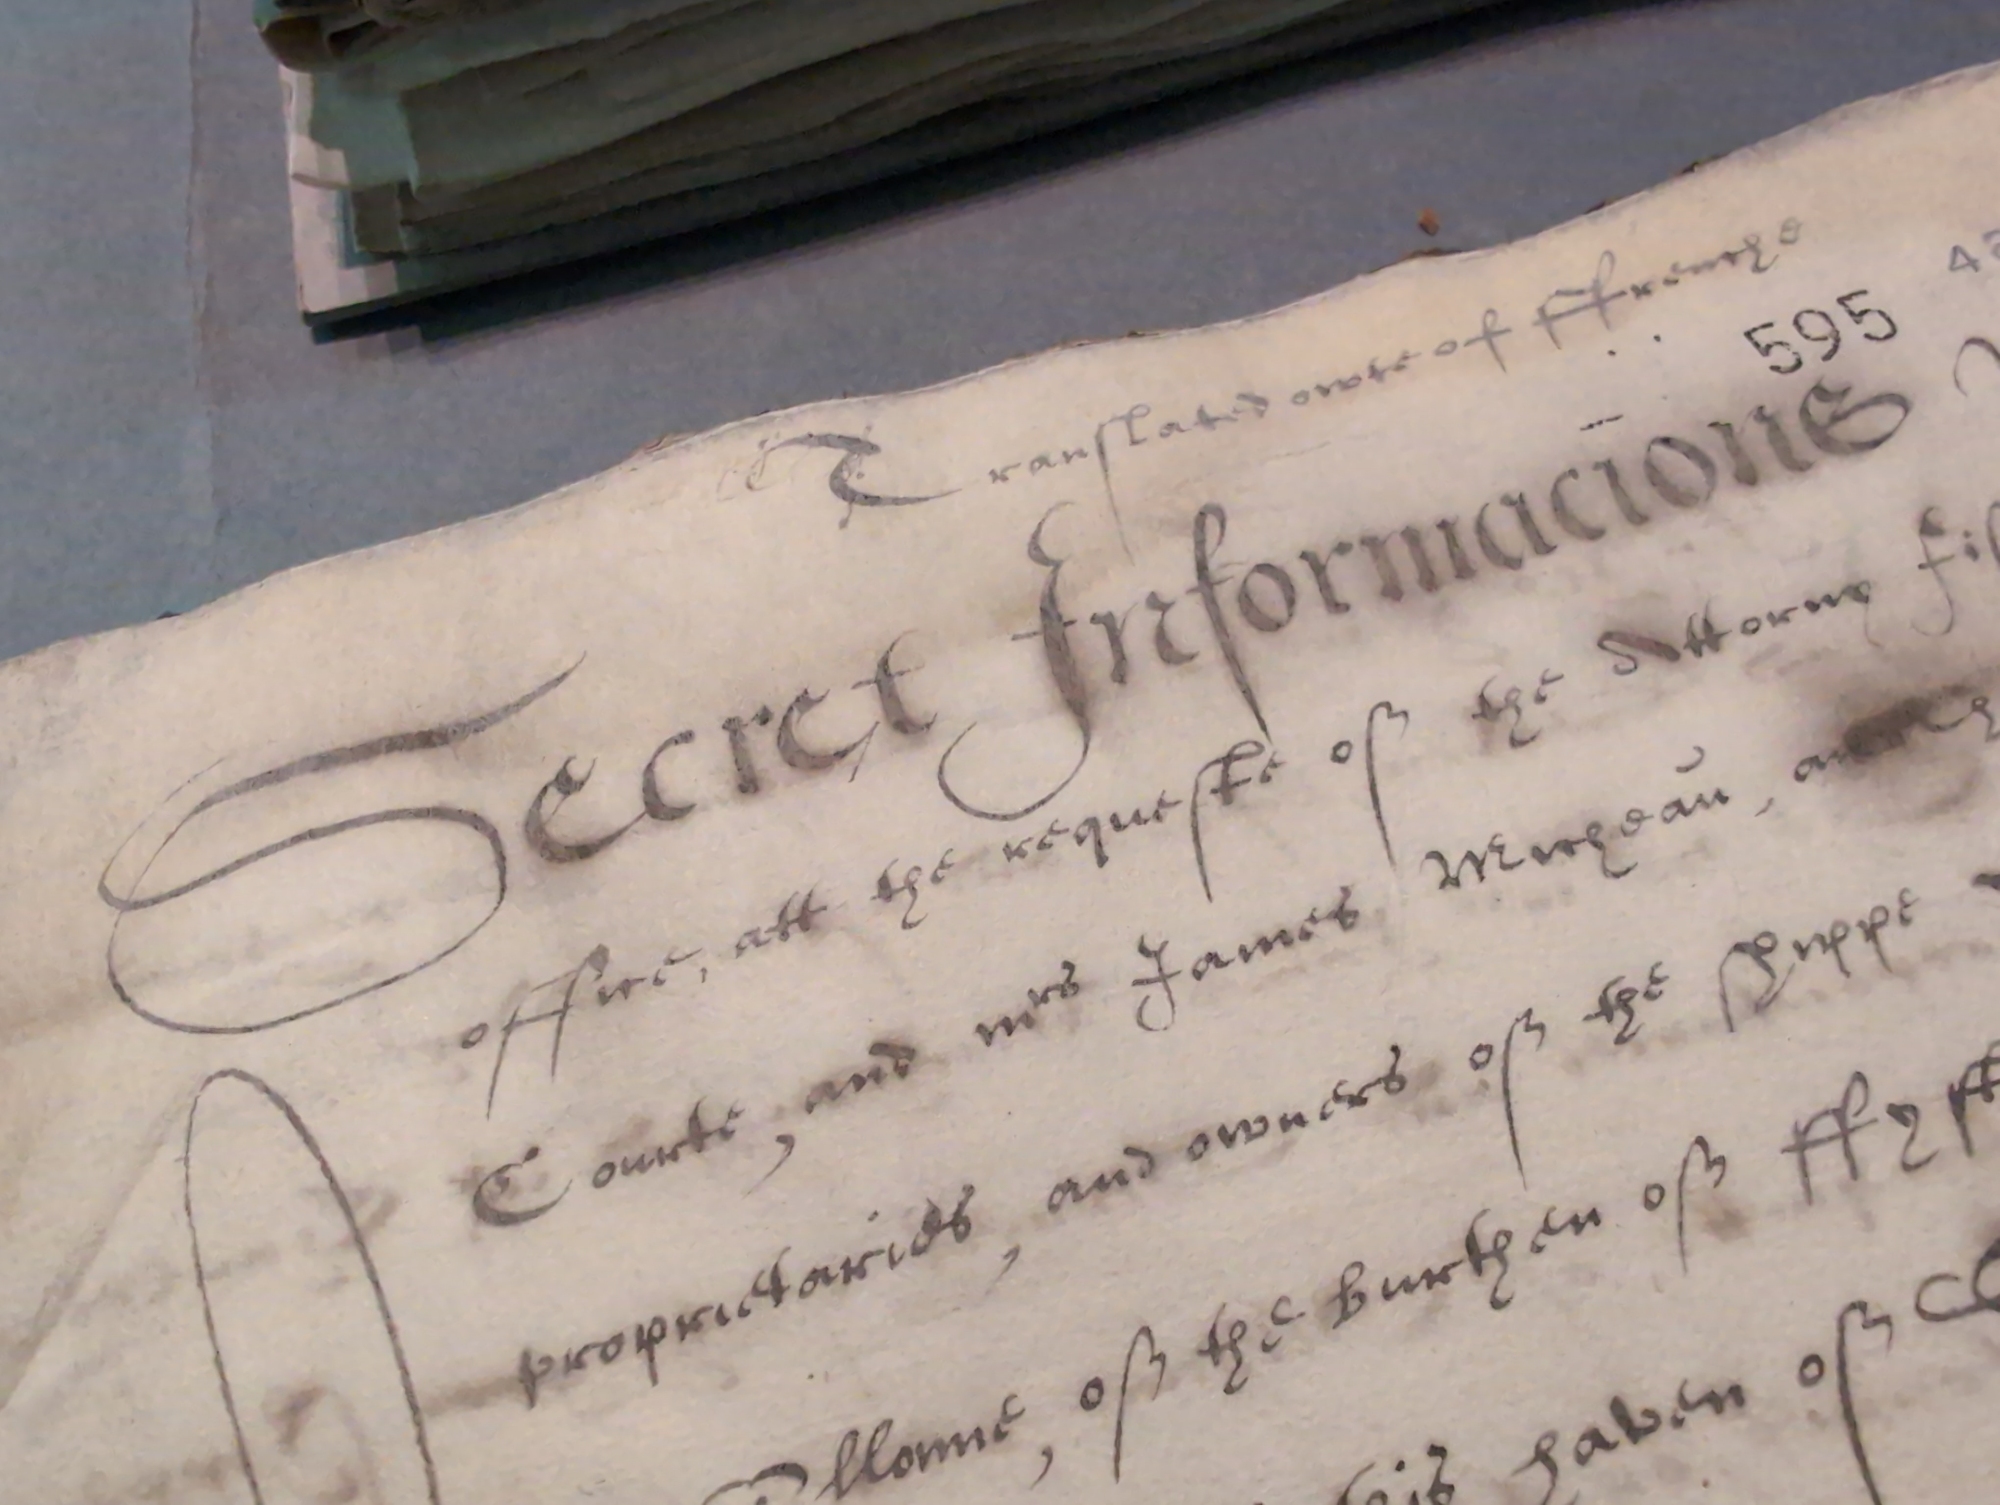 Translated owte of ffrenche
595 42
Secret Informacions
office, att the requeste of the Attorny
Courte, and mrs James Micheau,
proprietaries, and owners of the shippe
of the burthen of
haven of